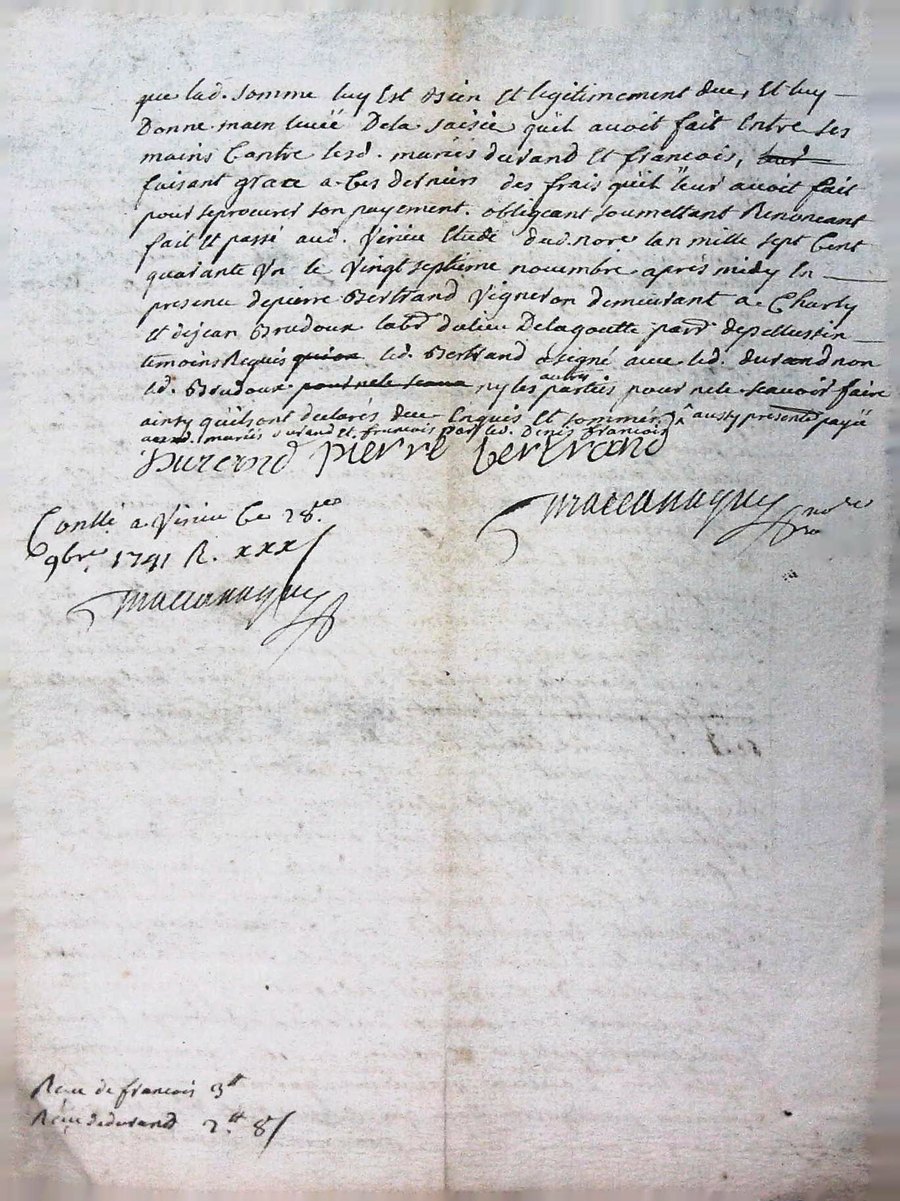 que lad. somme luy Est bien Et legitimement due, Et luy
Donne main levée Dela saisie quil avoit fait Entre ses
mains Contre lesd. mariés durand Et francois,
faisant grace a Ces derniers des frais quil leur avoit fait
pour se procurer son payement. obligeant soumettant Renonceant
fait Et passé aud. Virieu Etude dud. nore lan mille sept Cent
quarante Un le Vingt septieme novembre après midy En
presence de pierre Bertrand Vigneron demeurant a Charly
Et de jean Brudoux labr du lieu Delagoutte parr de pellussin
temoins Requis led. Bertrand a signé avec led. durand non
led. Brudoux ny les autres parties pour ne le scavoir faire
ainsy quils ont declarés de ce Enquis Et sommés, aussy presente payé
auxd. mariés durand Et francois par led. Denis francois
Durand pierre bertrand
maccanaguy nore
Conllé a Virieu Ce 28e
9bre 1741 R. xxx s
maccanaguy
Reçu de francois 3 tt
Reçu de durand 2 tt 8 s